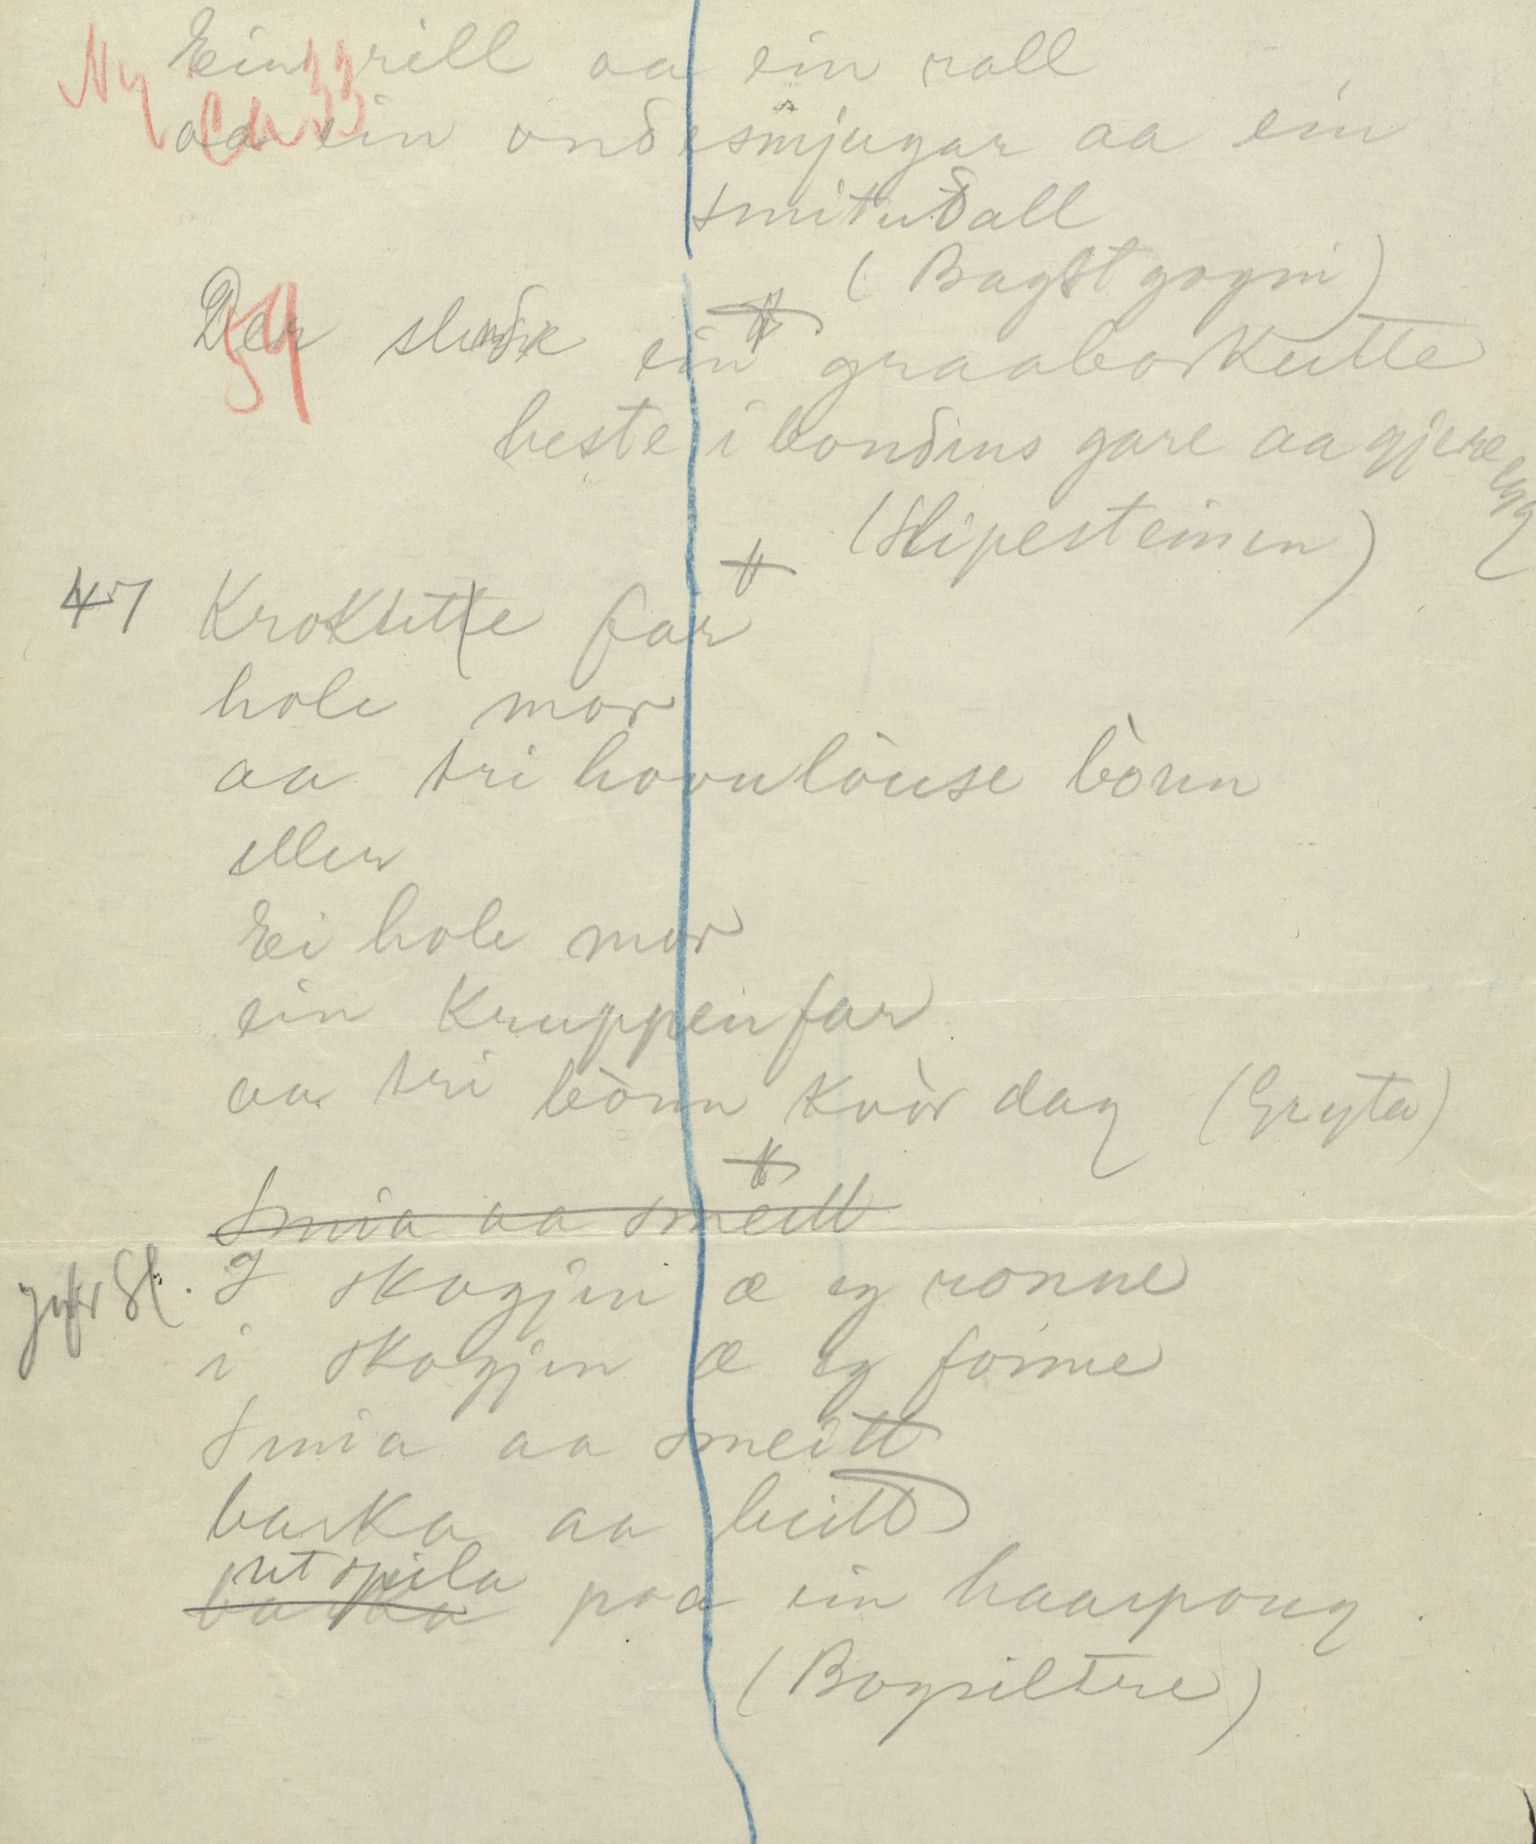 Ein rill aa ein rall
Ny
aa ein onde smjugar aa ein
smituðall
(Bagstgogni)
54
Der ein graaborkutte
heste i bondens gare aa gjere
egg
(Slipesteinen)
47 Krokutte far
hole mor
aa tri hovulòuse bònn
eller
Ei hole mor
ein Kruppen far
aa tri bònn kvòr dag (Gryta)
Smia aa smeitt
I skogjen æ eg ronne
i skogjen æ eg fonne
Smia aa smeitt
barka aa beitt
ut speila
barka paa ein haarpong.
(Bogsiltre)